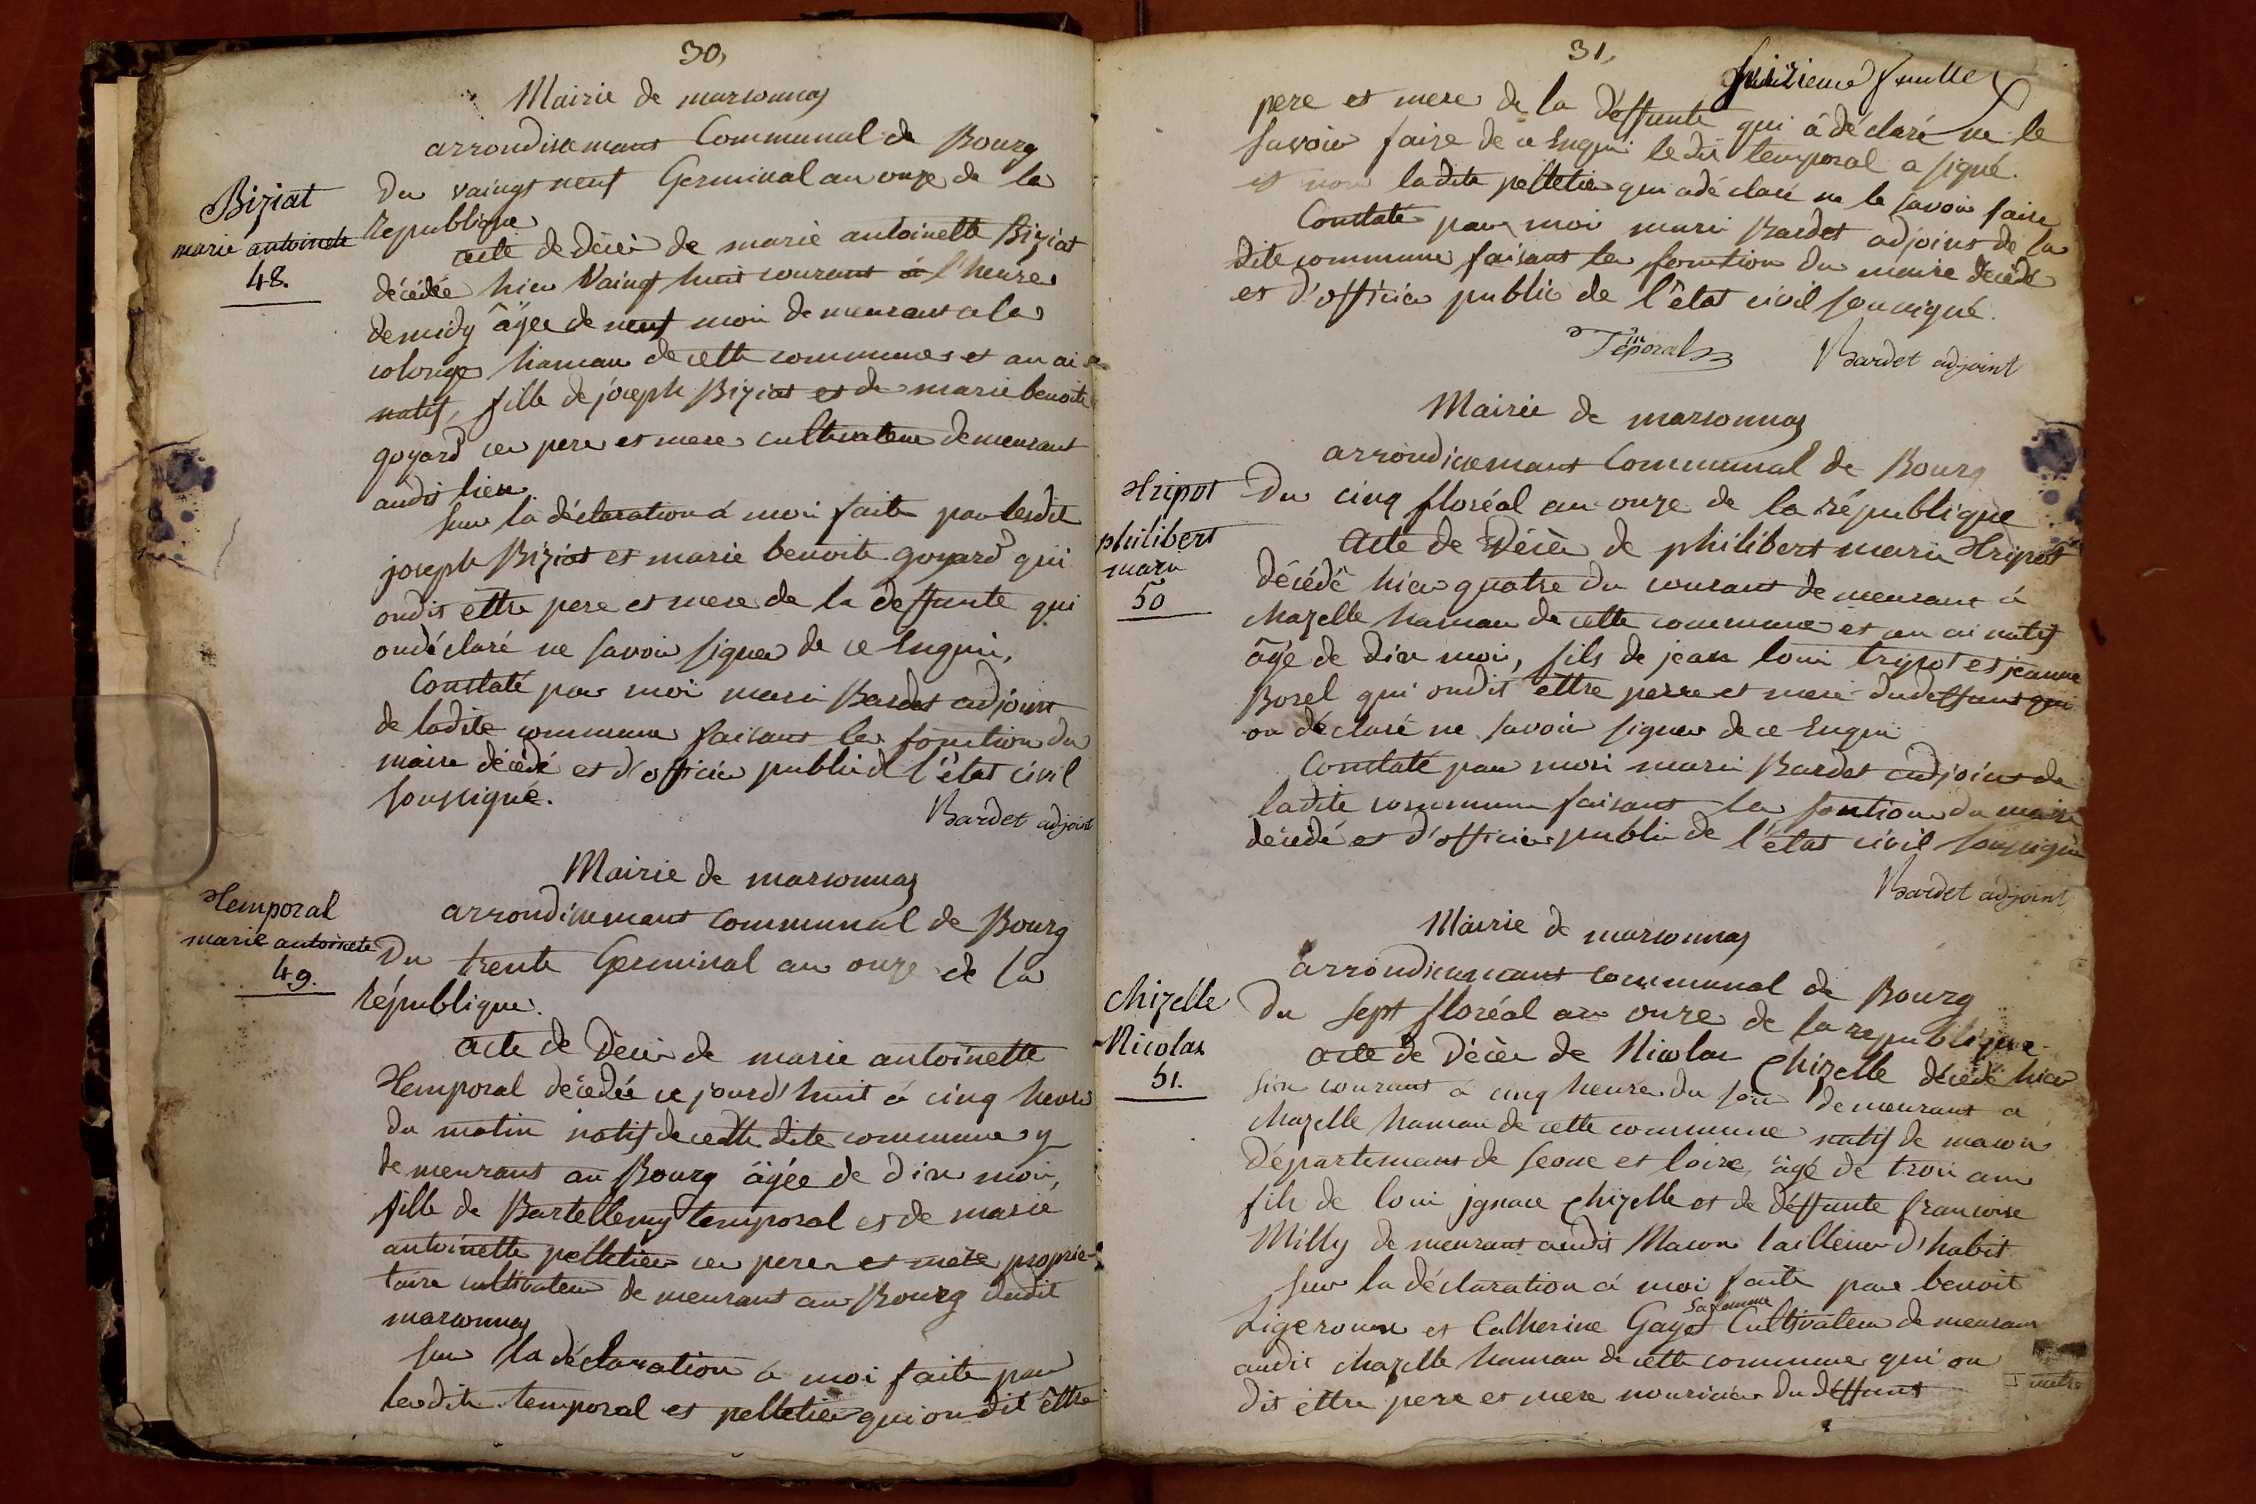 30,
Mairie de marsonnas
arrondisemant Communal de Bourg
Biziat
marie antoinete
48.
Du vaingt neuf Germinal an onze de la
republique
acte de décès de marie antoinette Biziat
décédée hier vaingt huit courant à l'heure
de midy âgée de neuf moi demeurant a la
colonge hamau de cette commune et an ai
natif, fille de joseph Biziat et de marie benoite
goyard ces pere et mere cultivateur demeurant
audit lieu.
sur la déclaration à moi faite par lesdit
joseph Biziat et marie benoite goyard qui
ondit ettre pere et mere de la deffunte qui
on déclaré ne savoir signer de ce enquis,
Constaté par moi mari Bardet adjoint
de ladite commune faisant les fonction du
maire décédé et d'officier public de l'état civil
soussigné.
Bardet adjoint
Mairie de marsonnas
arrondisemant communal de Bourg
Temporal
marie antoinete
49.
Du trente Germinal an onze de la
république.
acte de Décès de marie antoinette
Temporal décédée ce jourd'huit à cinq heure
du matin natif de cette dite commune y
demeurant au Bourg âgée de dix moi,
fille de Bartellemy temporal et de marie
antoinette pelletier ces pere et mère proprie-
taire cultivateur demeurant au Bourg dudit
marsonnas
sur la déclaration à moi faite par
lesdite temporal et pelletier qui on dit être
31,
seizieme feuillet
pere et mere de la déffunte qui â déclaré ne le
savoir faire de ce enquis ledit temporal a signé.
et non ladite pelletier qui a déclaré ne le savoir faire
Constaté par moi mari Bardet adjoint de la
dite commune faisant les fonction du maire décédé
et d'officier public de l'état civil soussigné.
Temporal
Bardet adjoint
Mairie de marsonnas
arrondisemant Communal de Bourg
Tripot
philibert
marie
50
Du cinq floréal an onze de la république
acte de Décès de philibert marie Tripot
décédé hier quatre du courant demeurant à
chazelle hamau de cette commune et an ai natif
âgé de dix moi, fils de jean loui tripot et jeanne
Borel qui ondit ettre perre et mere dudeffunt qui
on déclaré ne savoir signer de ce enquis
Constaté par moi mari Bardet adjoint de
ladite commune faisant les fontion du maire
décédé et d'officier public de l'état civil soussigné
Bardet adjoint
Mairie de marsonnas
arrondisemant communal de Bourg
Chizelle
Nicolas
51.
Du sept floréal an onze de la republique
acte de Décès de Nicolas Chizelle décédé hier
six courant à cinq heure du soir demeurant a
chazelle hamau de cette commune natif de macon
département de seone et loire, âgé de troi ans
fils de loui jgnace chizelle et de déffunte francoise
Milly demeurant audit Macon tailleur d'habit
sur la déclaration à moi faite par benoit
sa femme
Ligerouse et Catherine Gayet Cultivateur demeurant
audit chazelle hamau de cette commune qui on
dit ettre pere et mere nouricier du déffunt